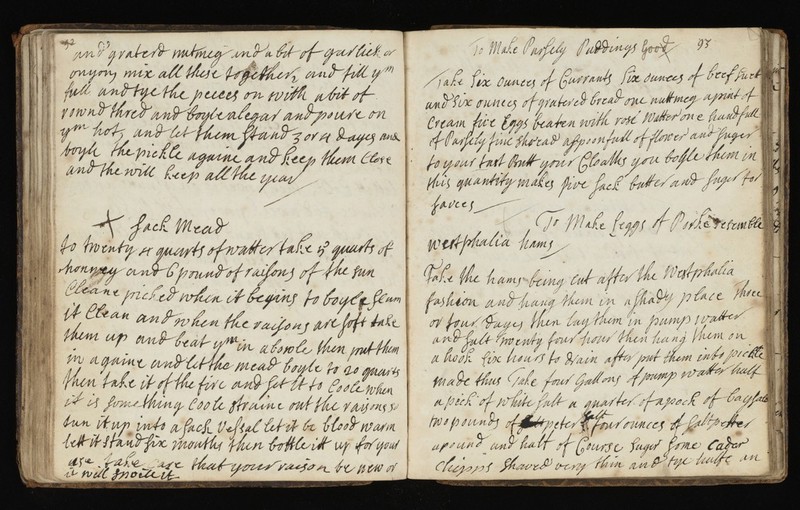 92
and grated nutmeg and a bit of garlick or
onyon, mix all these together, and fill ym
full and tye the peeces on with a bit of
rownd thred and boyle alegar and poure on
ym hot, and let them stand 3 or 4 dayes and
boyle the pickle againe and keep them Close
and the will keep all the year
Sack Mead
to twenty 4 quarts of watter take 5 quarts of
honney and 6 pound of raisons of the sun
Cleane picked when it begins to boyle scum
it Clean and when the raisons are soft take
them up and beat ym in a bowle then put them
in againe and let the mead boyle to 20 quarts
then take it of the fire and set it to Coole when
it is something Coole straine out the raysons &
tun it up into a sack vessal let it be blood warm
lett it stand six mouths then bottle itt up for your
use take care that your raison be new or
it will spoile it
To Make Parsely Puddings good 93
Take six ounces of Currants six ounces of beef suet
and six ounces of gratered bread one nuttmeg a print of
Cream five Eggs beaten with rose watter one handfull
of Parsely fine shread a spoonfull of flower and suger
to your tast Butt your Cloaths you boyle them in
this quantity makes five sack butter and suger for
sauces
To Make Leggs of Porke resemble
westphalia hams
Take the hams being cut after the Westphalia
fashion and hang them in a shady place three
or four dayes then lay them in pump watter
and salt twenty four hour then hang them on
a hook six hours to drain after put them into pickle
made thus Take four Gallons of pump watter half
a peck of white salt a quarter of a peck of bay salt
two pounds of peter salt four ounces of saltpetter
a pound and half of Course suger some Cedar
Chipps shaved very thin and tye halfe an